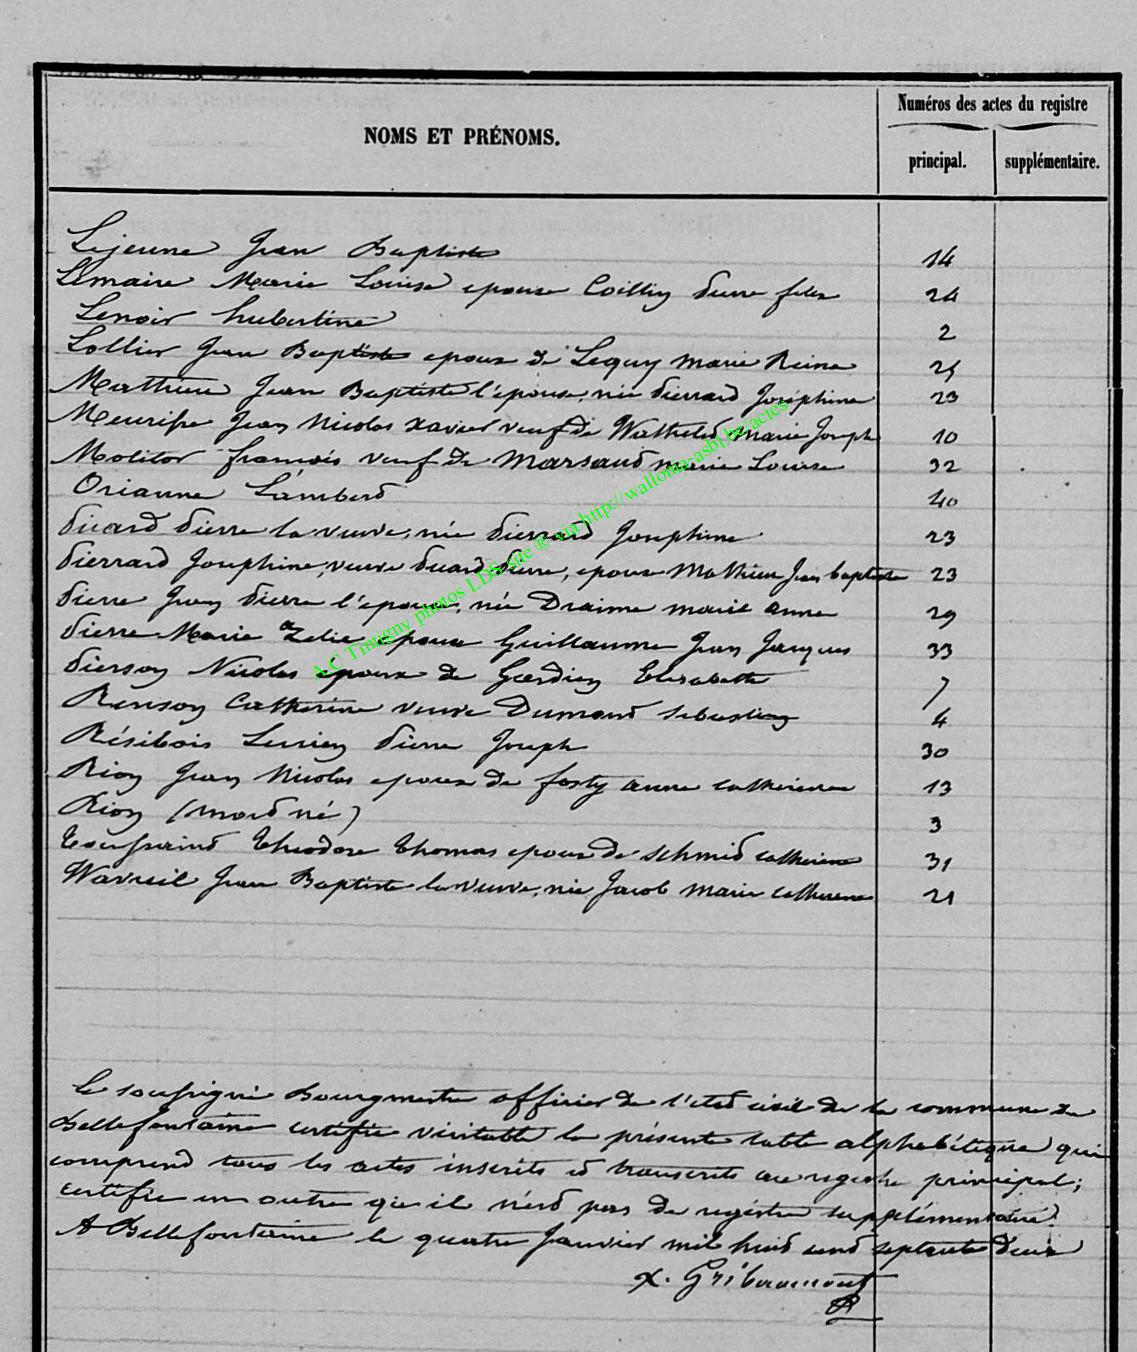 Numéros des actes du registre
NOMS ET PRÉNOMS.
principal. supplémentaire.
Lejeune Jean Baptiste 14
Lemaire Marie Louise epouse Pierre felix 24
Lenoir hubertine 2
Lollier Jean Baptiste epoux de Lequy Marie Reine 25
Mathieu Jean Baptiste l'épouse, née Pierrard Joséphine 23
Meurisse Jean Nicolas Xavier veuf de Wathelet Marie Joseph 10
Molitor françois veuf de Marsaud marie Louise 32
Orianne Lambert 40
Picard Pierre la veuve, née Pierrard Josephine 23
Pierrard Josephine, veuve Picard Pierre, epouse Mathieu Jean baptiste 23
Pierre Jean Pierre l'epouse, née Draime marie anne 29
Pierre Marie Zelie epouse Guillaume Jean Jacques 33
Pierson Nicolas epoux de Gardien Elisabeth 7
Renson Catherine veuve Dumont Sebastien 4
Résibois Lucien Pierre Joseph 30
Rion Jean Nicolas epoux de fosty anne catherine 13
Rion (mort né) 3
Toussaint Théodore Thomas epoux de Schmid catherine 31
Wavreil Jean Baptiste la veuve, née Jacob Marie catherine 21
A.C Tintigny photos LDS site @ via http://wallonia-asbl.be/actes
Le soussigné Bourgmestre officier de l'état civil de la commune de
Bellefontaine certifie véritable la présente table alphabétique qui
comprend tous les actes inscrits et transcrits au registre principal;
certifie en outre qu'il n'est pas de registre supplémentaire.
A Bellefontaine le quatre Janvier mil huit cent septante deux
X. Gribaumont